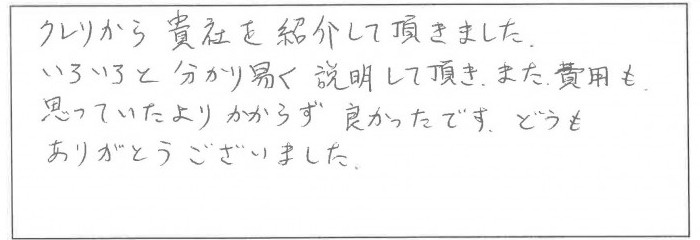 クレリから貴社を紹介して頂きました.
いろいろと分かり易く説明して頂き.また.費用も.
思っていたよりかからず良かったです.どうも
ありがとうございました.